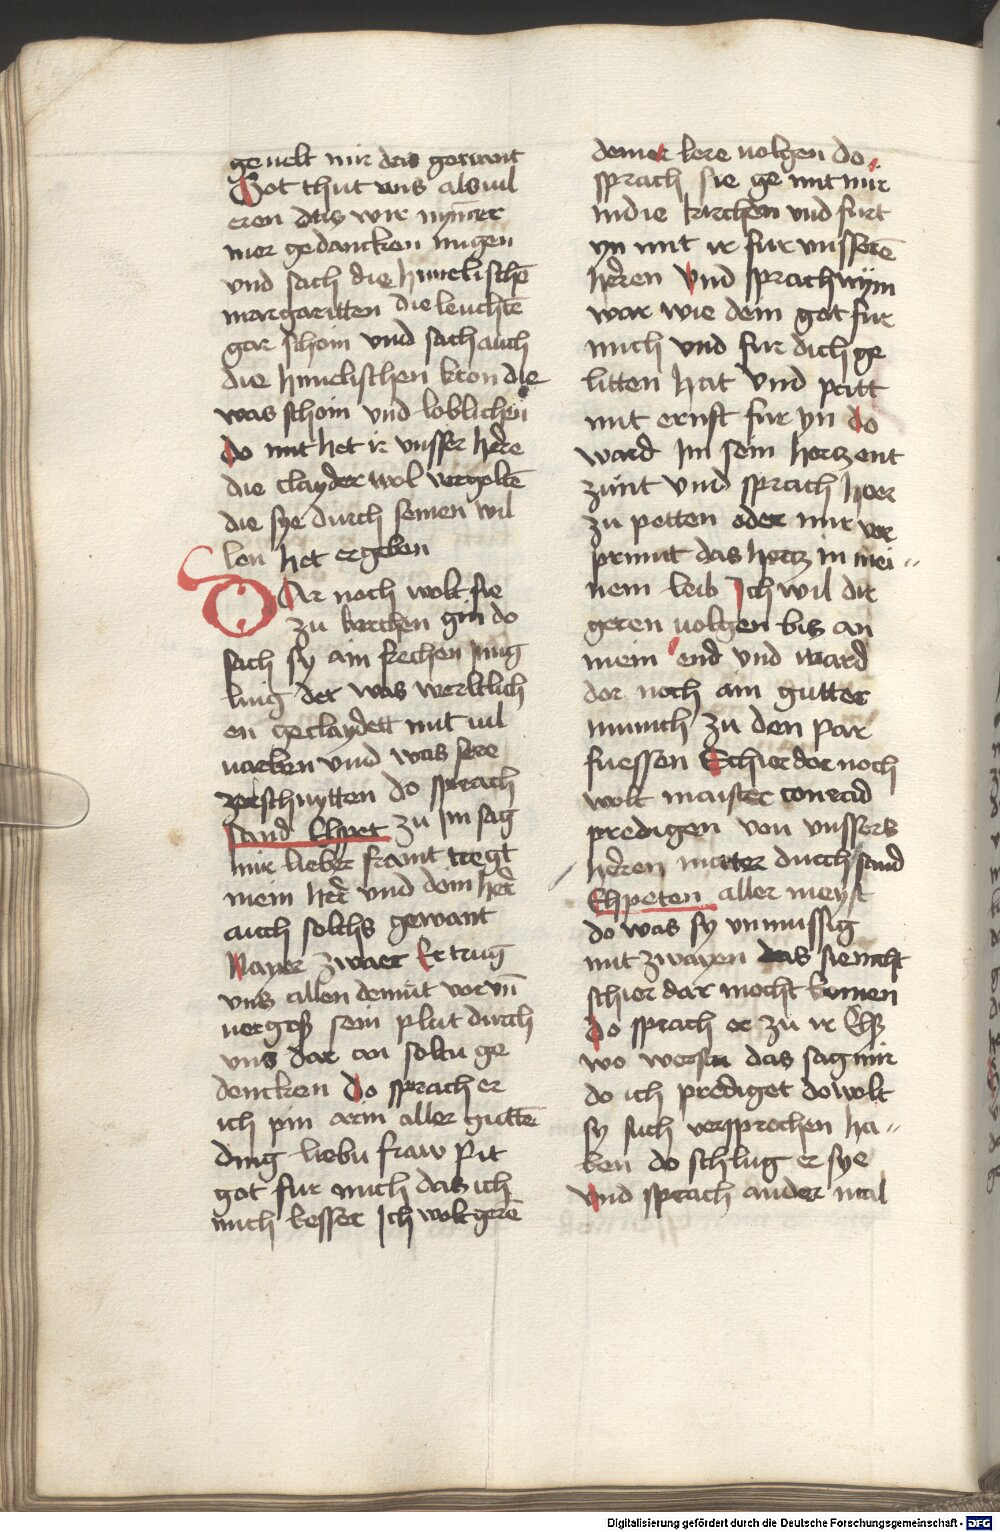 geuelt mir das gewant
Got thut uns als uil
eren das wir nym̄er
mer gedancken mugen
vnd sach die himelischē
margaritten die leuchtē
gar schoin vnd sach auch
die himelischen kron die
was schoin vnd loblichen
do mit het ir vnsser here
die clayder wol vergoltē
die sye durch seinen wil
len het ergeben
Dar noch wolt sie
zu kirchen gin do
sach sy ain frechen jung
ling der was werltlich
en geclaydett mit uil
uarben vnd was sere
zerschnytten do sprach
sand Elspet zu im sag
mir lieber fraint tregt
mein her vnd dein her
auch solchs gewant
Nayer zwaer Er trug
vns allen demut vor vn̄
uergoß sein plut durch
vns dar an soltu ge
dencken do sprach er
ich pin arm aller guttē
ding liebu fraw Pit
got fur mich das ich
mich besser Ich wolt gerē
deiner lere uolgen do
sprach sie ge mit mir
in die kirchen vnd furt
yn mit ir fur vnsserē
heren Vnd sprach nym
war wie dein got fur
mich vnd fur dich ge
litten hat Vnd patt
mit ernst fur yn do
ward Im sein hertz ent
zunt Vnd sprach hoer
zu petten oder mir ver
prinnt das hertz in mei=
nem leib Ich wil dir
geren uolgen bis an
mein end vnd ward
dor noch ain gutter
munich zu den par
fuessen Schier dor noch
wolt maister conrad
predigen von vnssers
heren marter durch sand
Elspeten aller meyst
do was sy unmussig
mit zwayen das sie nicht
schier dar mocht komen
do sprach er zu ir Elß
wo wersu das sag mir
do ich prediget do wolt
sy sich versprochen ha=
ben do schlug er sye
Vnd sprach ander mal
Digitalisierung gefördert durch die Deutsche Forschungsgemeinschaft - DFG